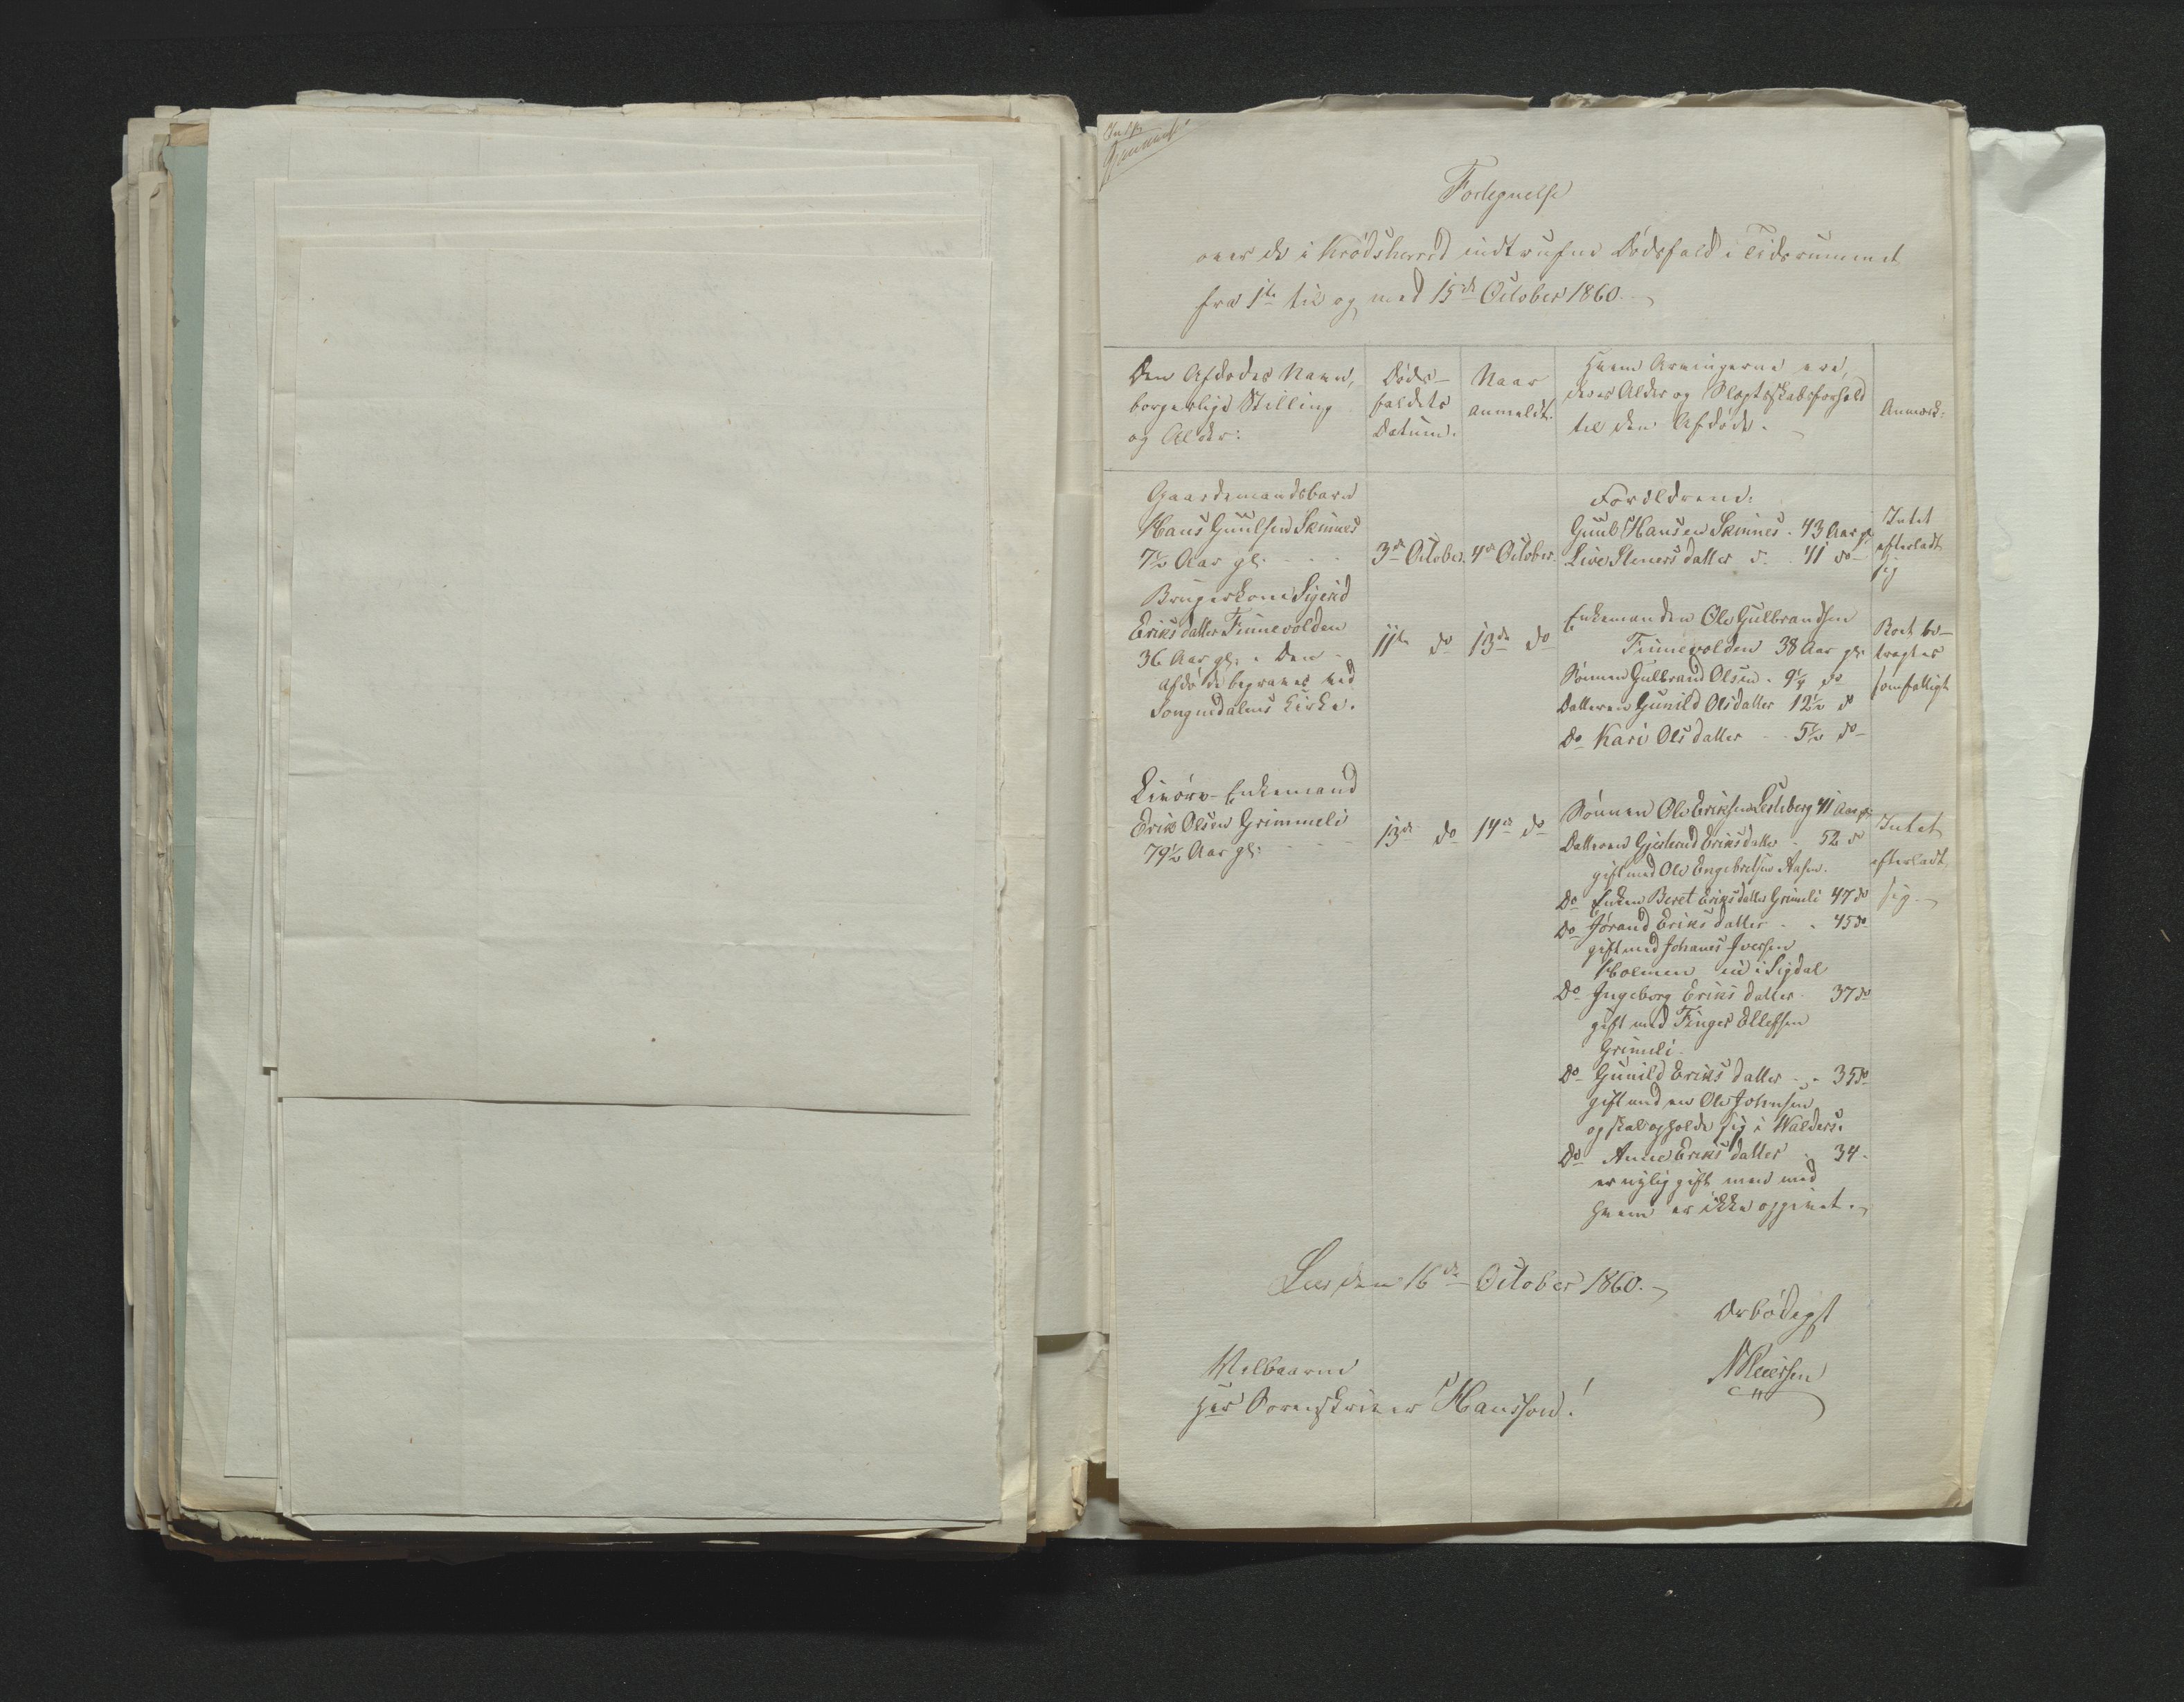 Fortegnelse
over de i Krødsherred indtrufne Dødsfald i Tidsrummet
fra 1ste til og med 15de October 1860.
Den Afdødes Navn,
borgerlige Stilling
og Alder:
Døds-
faldets
Datum.
Naar
anmeldt.
Hvem Arvingerne ere,
deres Alder og Slægtskabsforhold
til den Afdøde.
Anmærk:
Gaardemandsbarn
Hans Guulsen Skinnes
7½ Aar gl.
3de October.
4de October.
Forældrene:
Guul Hansen Skinnes. 43 Aar gl.
Live Stenersdatter 41 do
Intet
efterladt
sig
Brugerkone Sigrid
Eriksdatter Finnevolden
36 Aar gl. Den
Afdøde begraves ved
Songnedalens Kirke.
11te do
13de do
Enkemanden Ole Gulbrandsen
Finnevolden 38 Aar gl.
Sønnen Gulbrand Olsen. 9¼ do
Datteren Gunild Olsdatter 12½ do
Do Kari Olsdatter 5½ do
Boet be-
tragtes
som fattigt
Enkemand
Erik Olsen Grimmeli
79½ Aar gl:
13de do
14de do
Sønnen Ole Eriksen Lesteberg 41 Aar gl.
Datteren Gjertrud Eriksdatter 52 do
gift med Ole Engebretsen Aasen.
Do Enken Beret Eriksdatter Grimeli 47 do
Do Jørand Eriksdatter 45 do
gift med Johanes Iversen
Holmen i Sigdal
Do Ingeborg Eriksdatter 37 do
gift med Finger Ellefsen
Grimeli.
Do Gunild Eriksdatter 35 do
gift med en Ole Johnsen
og skal opholde sig i Walders.
Do Anne Eriksdatter 34.
er nylig gift men med
hvem er ikke oppivet.
Intet
efterladt
sig.
den 16de October 1860.
Ærbødigst
Velbaarne
Her Sorenskriver Hansson!